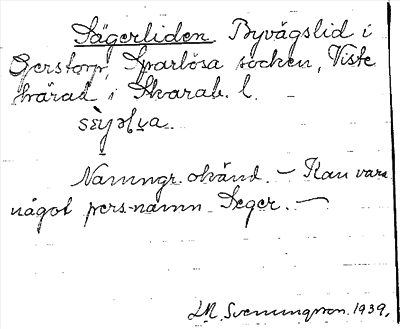 Sägerliden Byvägslid i
Gerstorp, Sparlösa socken, Viste
härad i Skarab. l. –
Namngr. okänd. – Kan vara
något pers-namn Seger. –
Svenningsson. 1939.